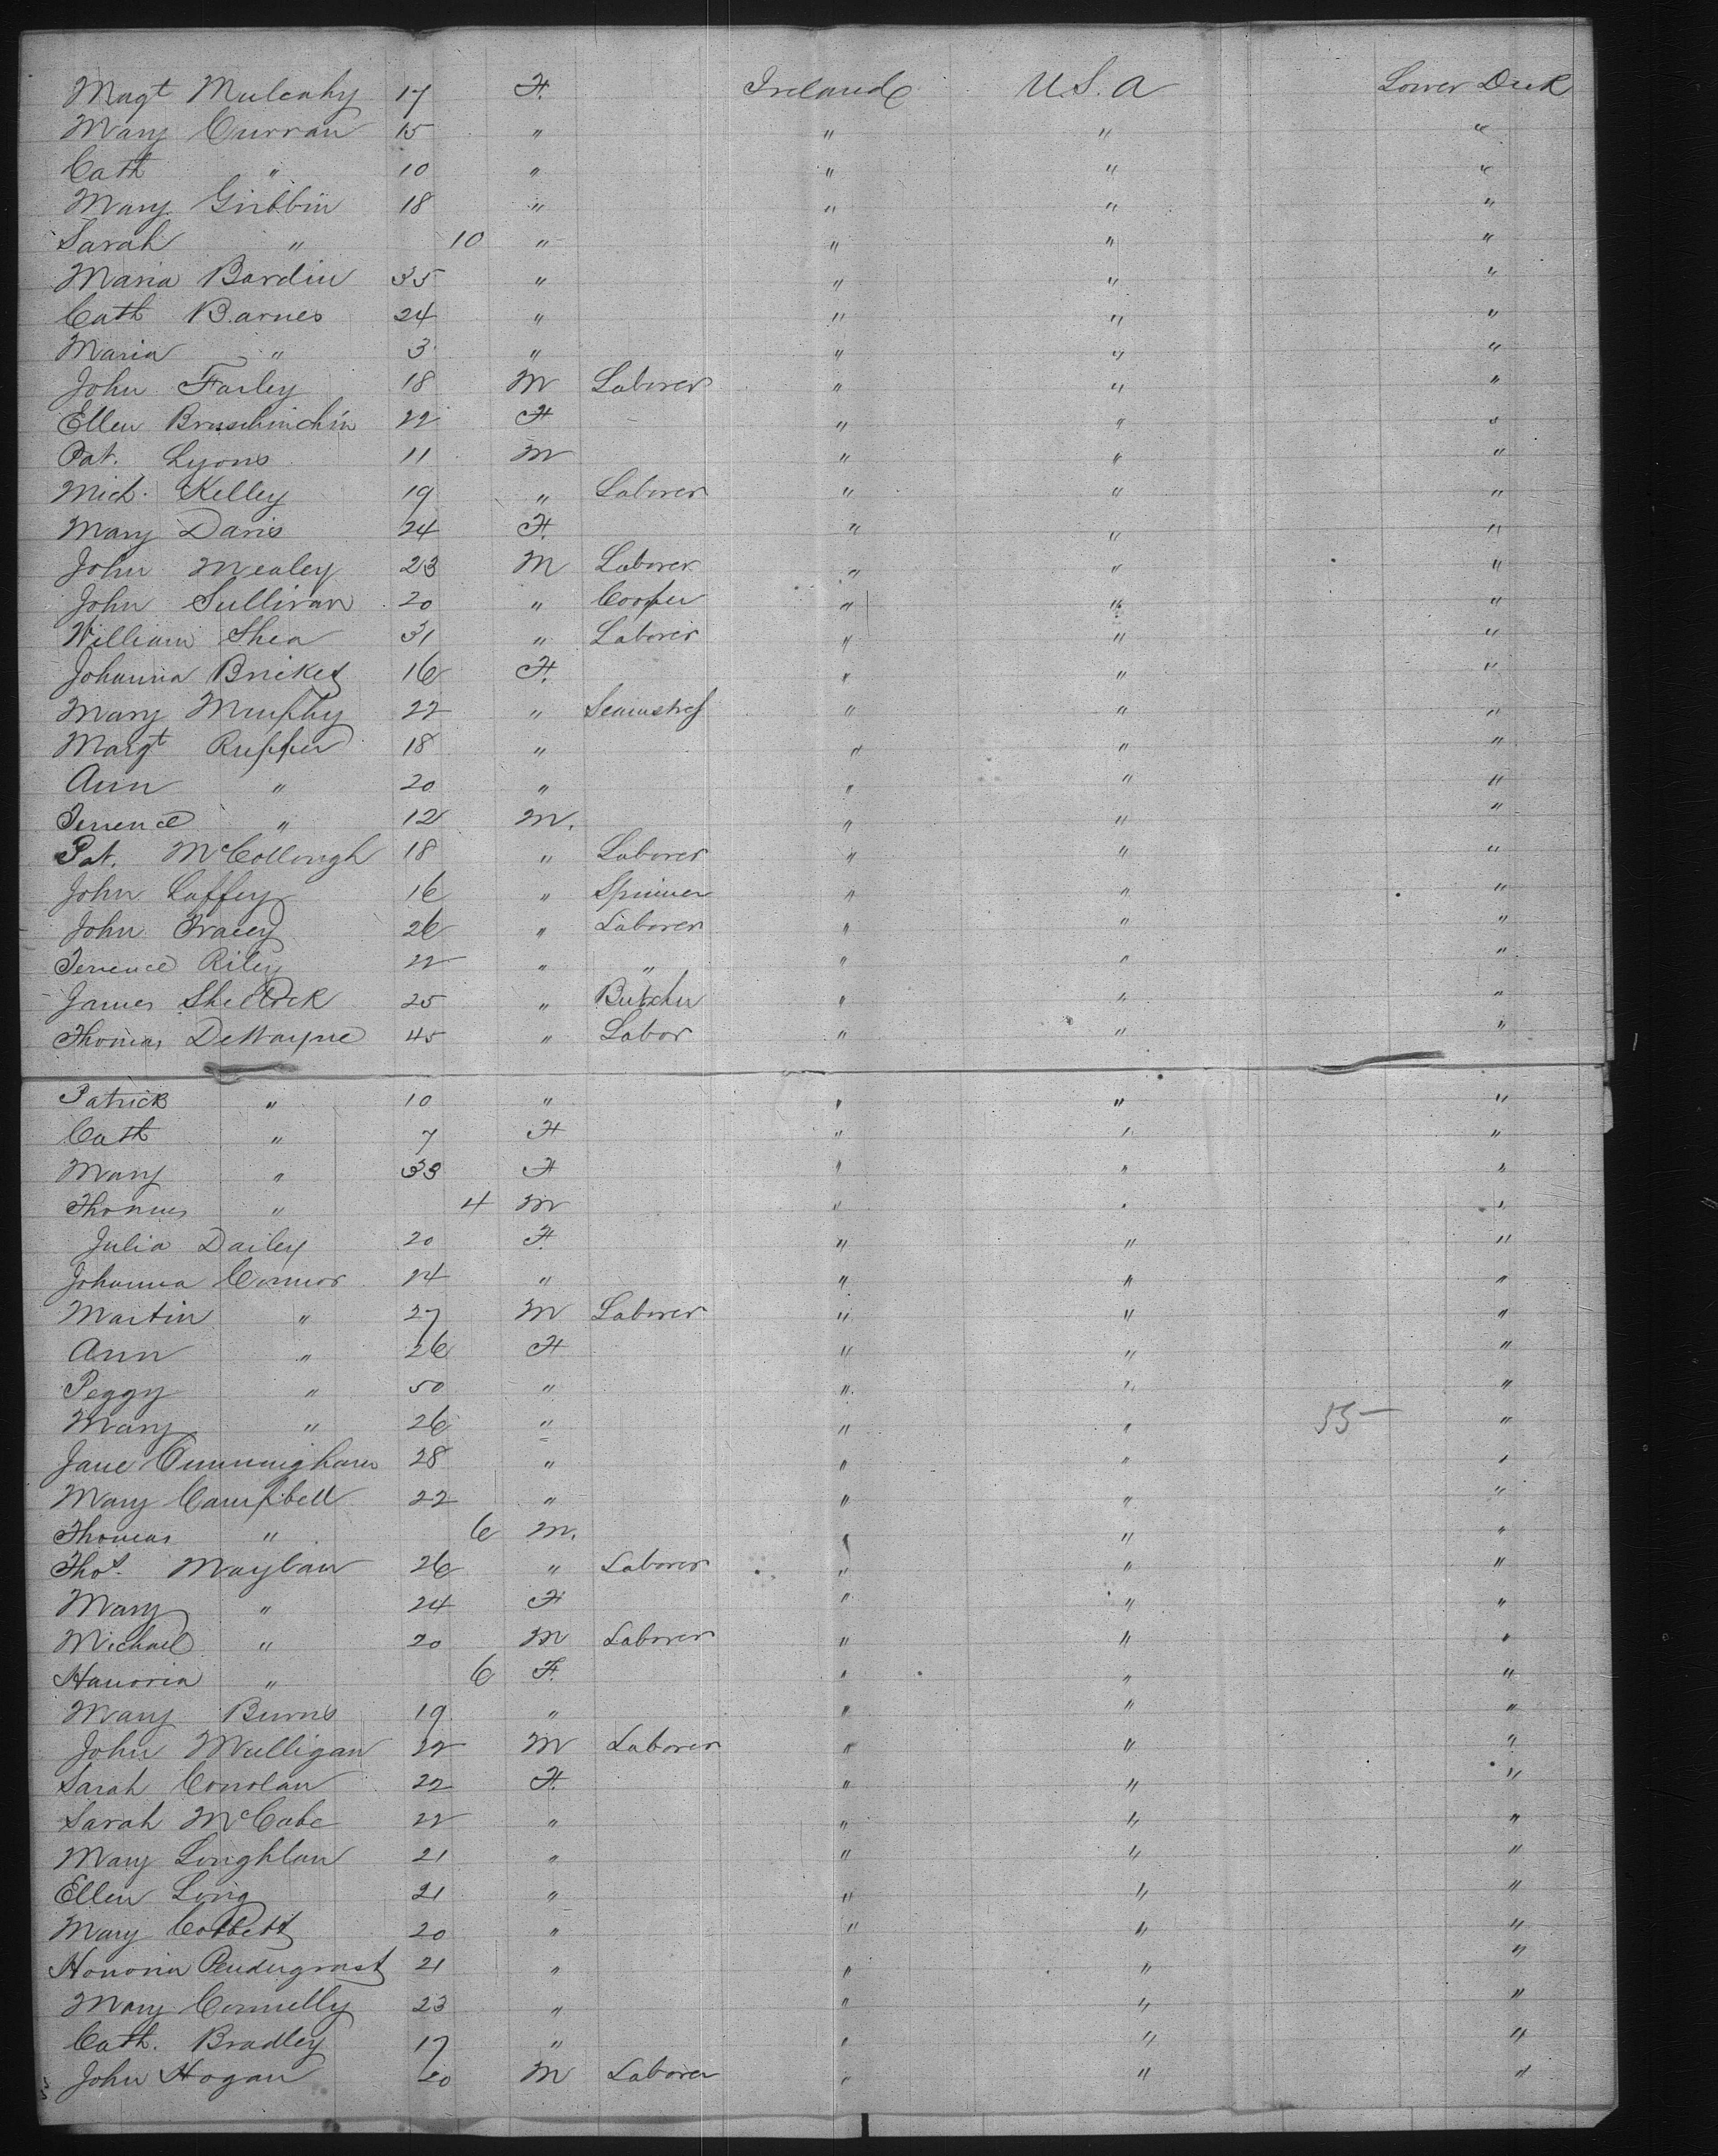 Magt Mulcahy 17 F. Ireland U.S.A Lower Deck
Mary Curran 15 " " " "
Cath " 10 " " " "
Mary Gribbin 18 " " " "
Sarah " 10 " " " "
Maria Bardin 35 " " " "
Cath Barnes 24 " " " "
Maria " 3 " " " "
John Farley 18 M Laborer " " "
Ellen 22 F " " "
Pat. Lyons 11 M " " "
Mich. Kelley 19 " Laborer " " "
Mary Davis 24 F. " " "
John Mealey 23 M Laborer " " "
John Sullivan 20 " Cooper " " "
William Shea 31 " Laborer " " "
Johanna Bricket 16 F. " " "
Mary Murphy 22 " Seamstress " " "
Margt Rupper 18 " " " "
Ann " 20 " " " "
Terrence " 12 M. " " "
Pat. McCollough 18 " Laborer " " "
John Caffey 16 " Spinner " " "
John Tracey 26 " Laborer " " "
Terrence Riley 22 " " " " "
James Sherlock 25 " Butcher " " "
Thomas DeWayne 45 " Labor " " "
Patrick " 10 " " " "
Cath " 7 F " " "
Mary " 33 F " " "
Thomas " 4 M " " "
Julia Dailey 20 F. " " "
Johanna Connor 24 " " " "
Martin " 27 M Laborer " " "
Ann " 26 F " " "
Peggy " 50 " " " "
Mary " 26 " " " 55 "
Jane Cunningham 28 " " " "
Mary Campbell 22 " " " "
Thomas " 6 M. " " "
Thos. Maylan 26 " Laborer " " "
Mary " 24 F " " "
Michael " 20 M Laborer " " "
Hanoria " 6 F. " " "
Mary Burns 19 " " " "
John Mulligan 22 M Laborer " " "
Sarah Conolan 22 F. " " "
Sarah McCabe 22 " " " "
Mary Loughlan 21 " " " "
Ellen Long 21 " " " "
Mary Corbett 20 " " " "
Honoria Pendergrast 21 " " " "
Mary Connelly 23 " " " "
Cath. Bradley 17 " " " "
John Hogan 20 M Laborer " " "